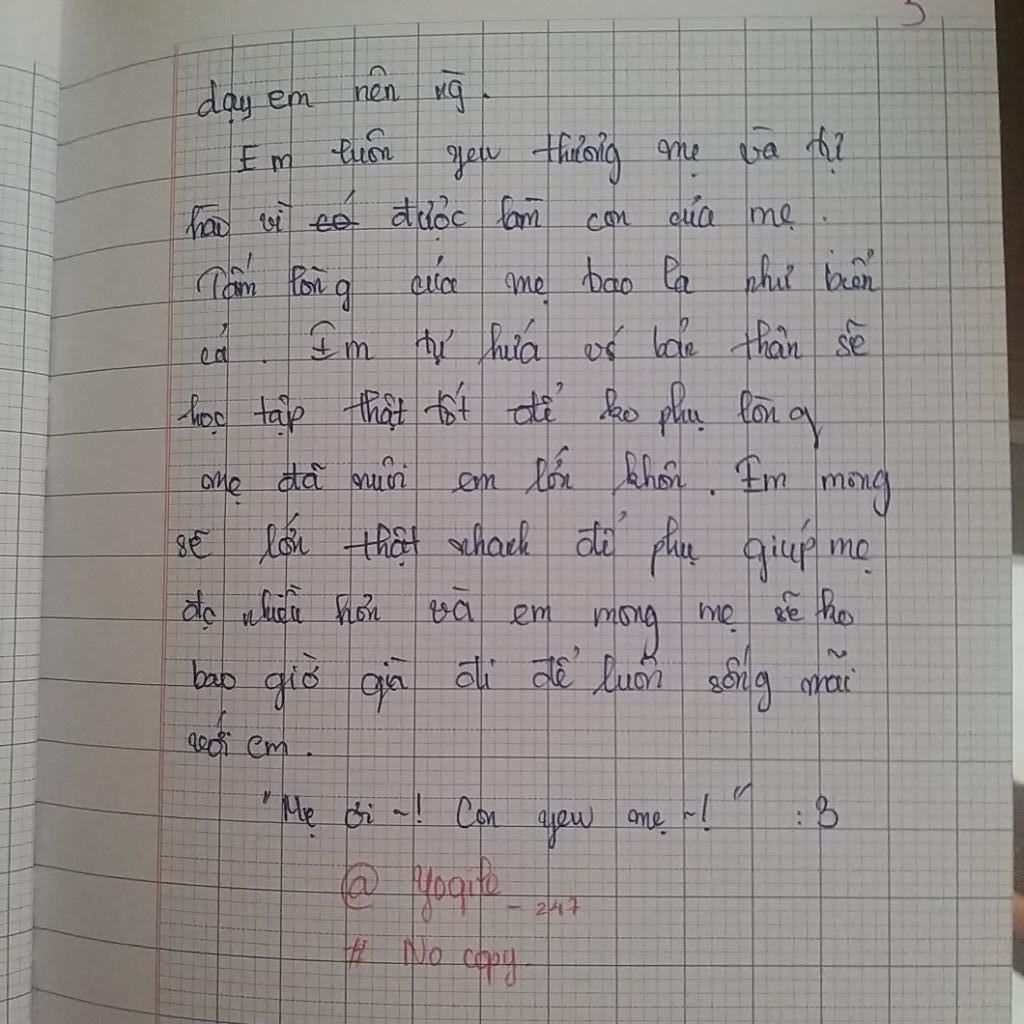 3
dạy em nên ng.
Em luôn yeu thương mẹ và tự
hào vì có được làm con của mẹ.
Tấm lòng của mẹ bao la như biển
cả. Em tự hứa vs bản thân sẽ
học tập thật tốt để ko phụ lòng
mẹ đã nuôi em lớn khôn. Em mong
sẽ lớn thật nhanh để phụ giúp mẹ
đc nhiều hơn và em mong mẹ sẽ ko
bao giờ già đi để luôn sống mãi
với em.
"Mẹ ơi ~! Con yeu mẹ ~!" :3
@ _247
# No copy